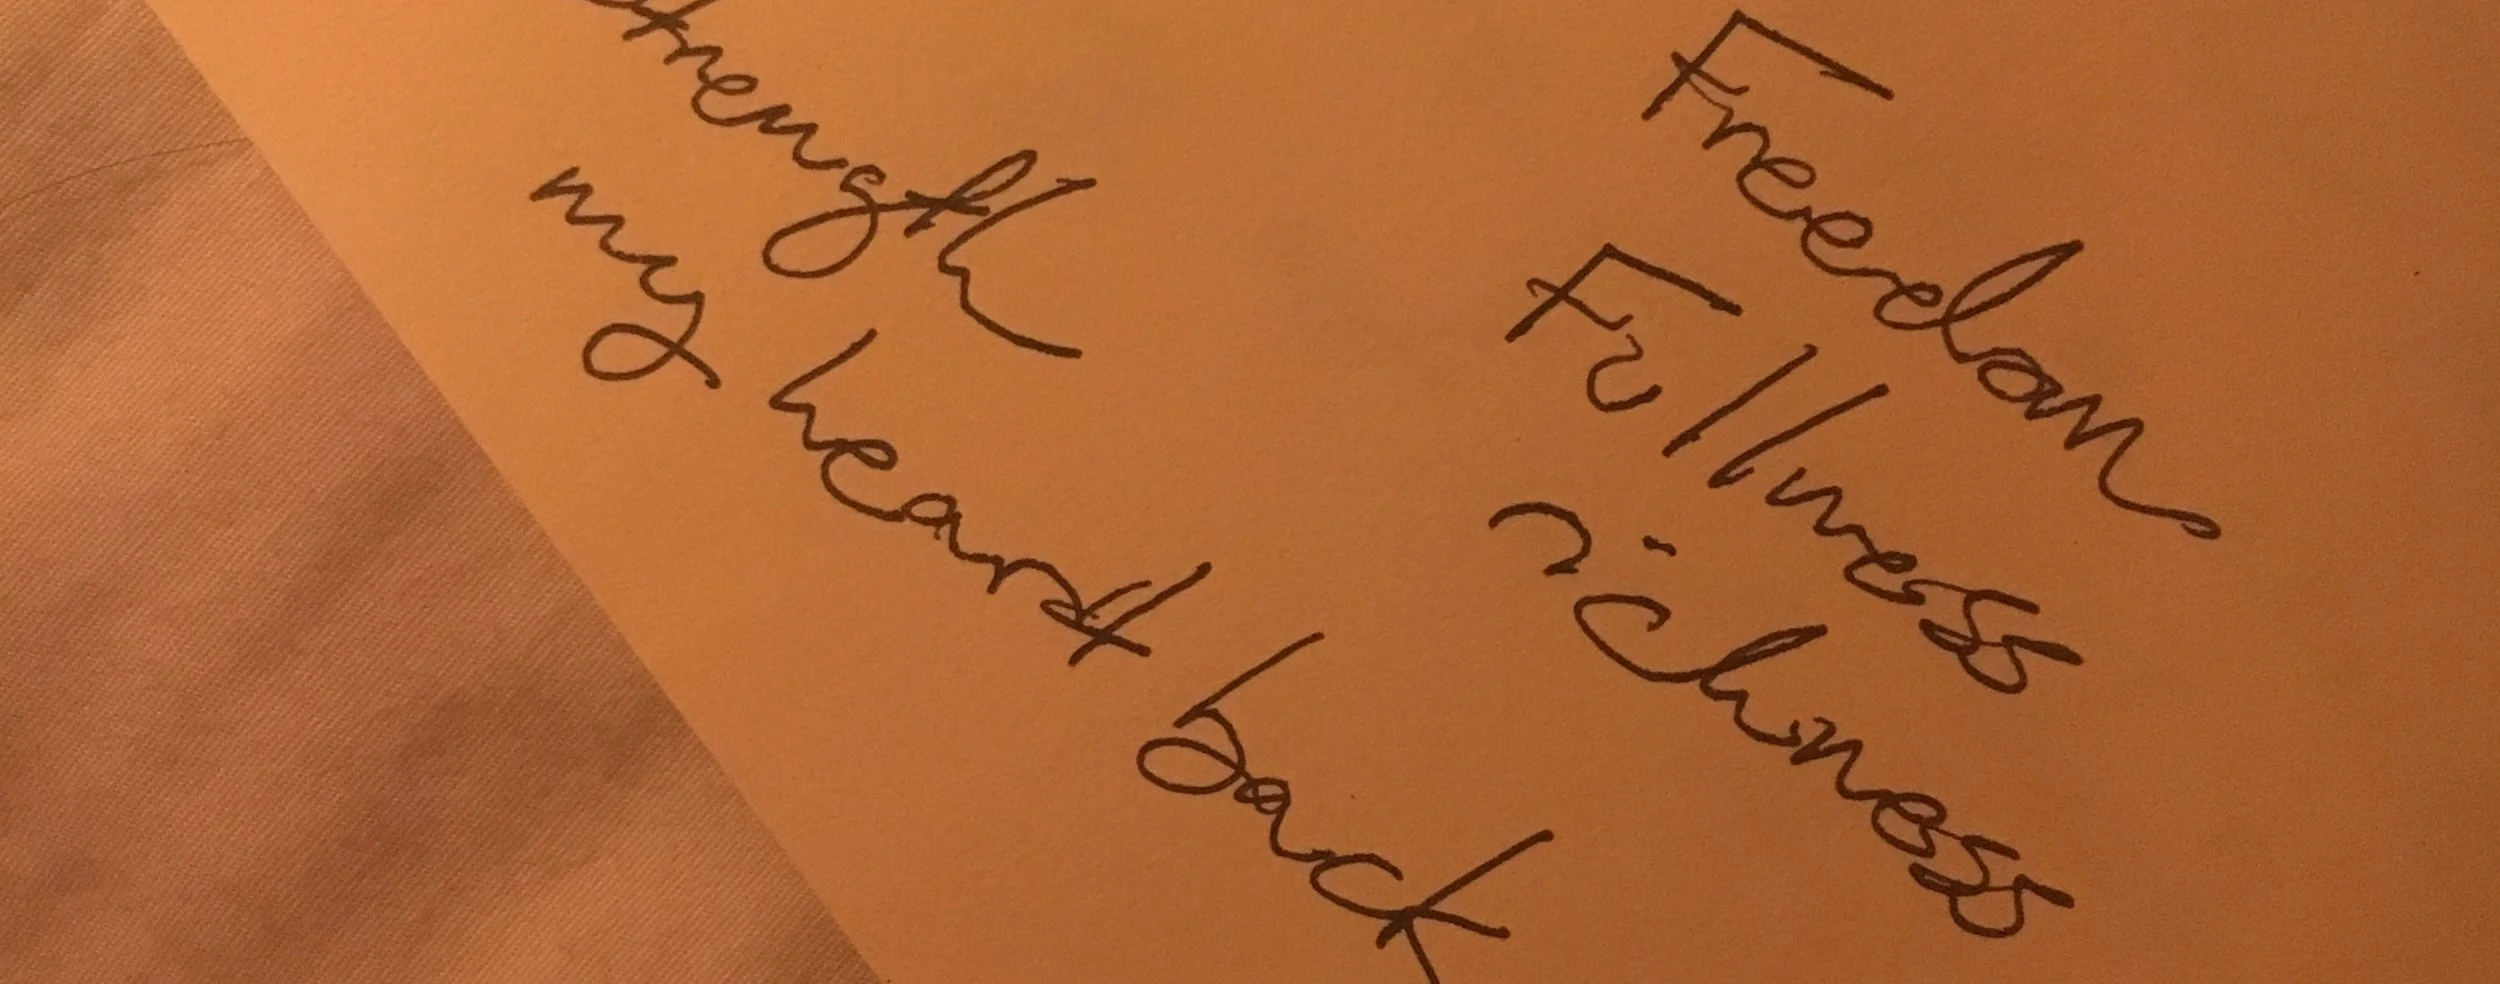 Freedom
Fullness
richness
strength
my heart back